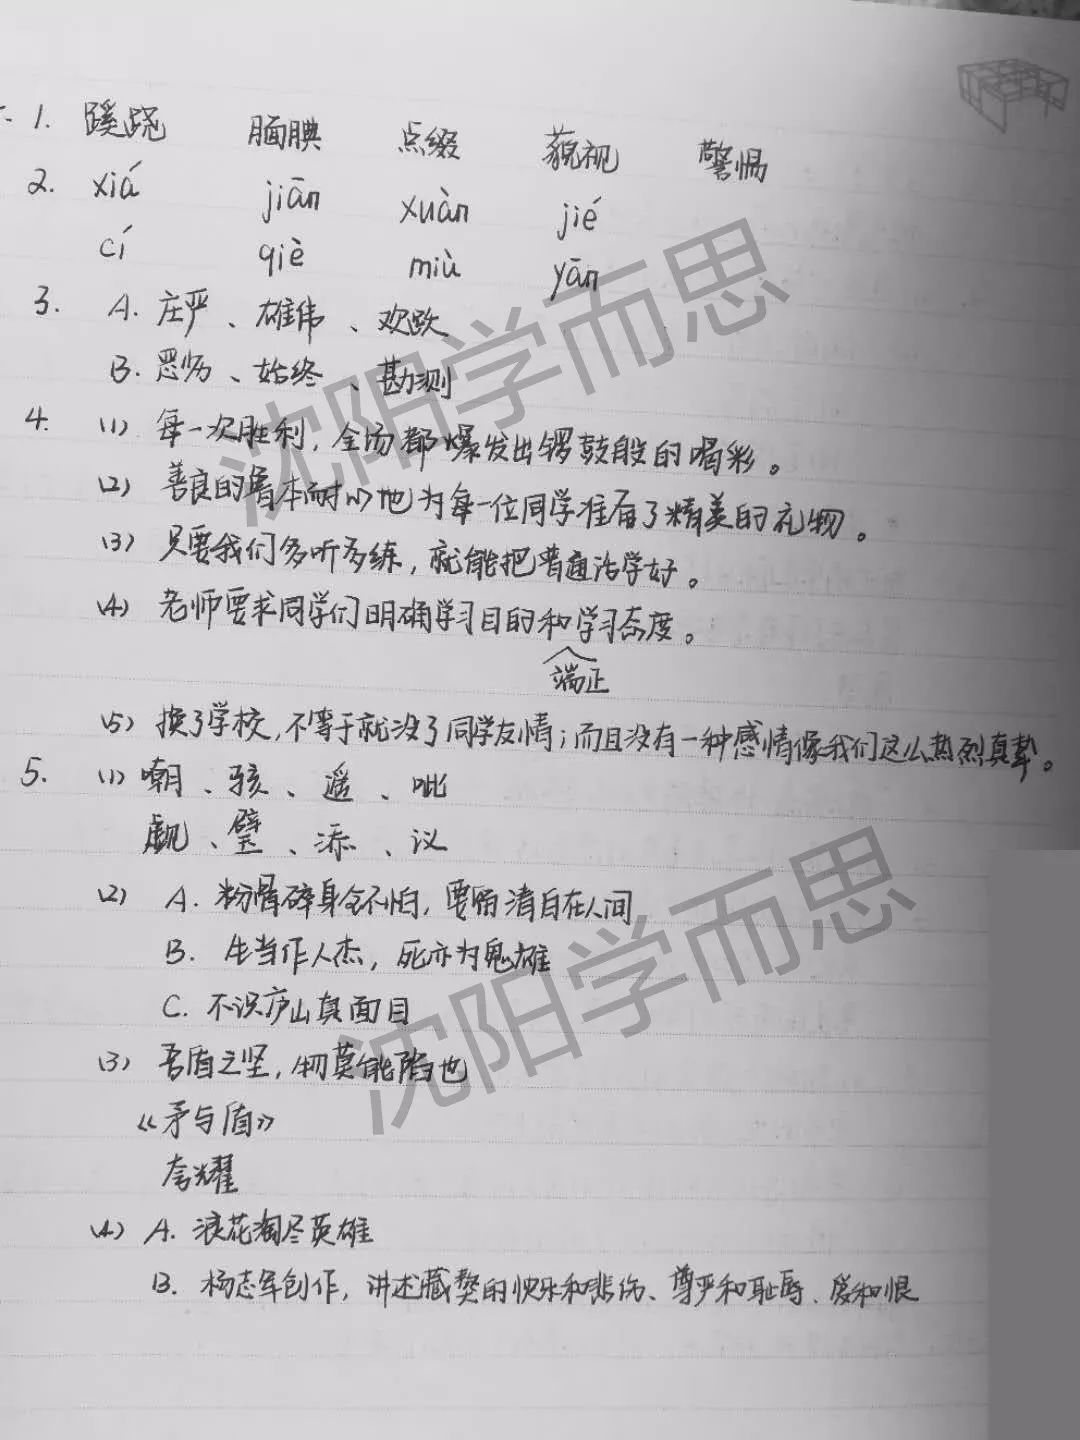 1. 蹊跷 腼腆 点缀 藐视 警惕
2. xiá jiān xuàn jié
cí qiè miù yān
3. A. 庄严、雄伟、欢跃
B. 恶劣、始终、勘测
4. (1) 每一次胜利,全场都爆发出锣鼓般的喝彩。
(2) 善良的鲁本耐心地为每一位同学准备了精美的礼物。
(3) 只要我们多听多练,就能把普通话学好。
(4) 老师要求同学们明确学习目的和学习态度。
端正
(5) 换了学校,不等于就没了同学友情;而且没有一种感情像我们这么热烈真挚。
5. (1) 嘲、骇、遥、呲
觑、璧、添、议
(2) A. 粉骨碎身全不怕,要留清白在人间
B. 生当作人杰,死亦为鬼雄
C. 不识庐山真面目
(3) 吾盾之坚,物莫能陷也
《矛与盾》
夸耀
(4) A. 浪花淘尽英雄
B. 杨志军创作,讲述藏獒的快乐和悲伤、尊严和耻辱、爱和恨
沈阳学而思
沈阳学而思